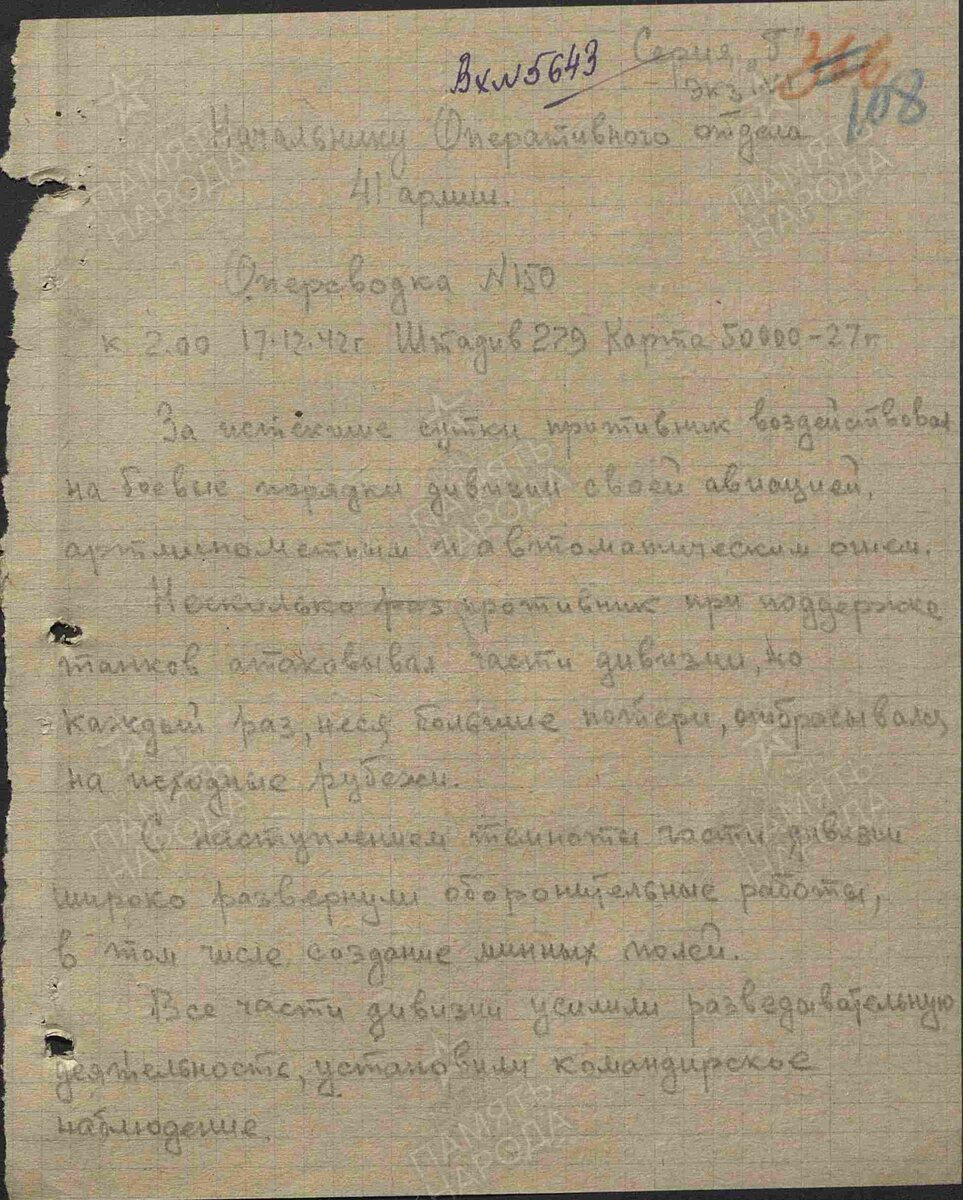 Вх№5643 Серия „Г"
экз №1 366
108
Начальнику Оперативного отдела
41 армии.
Оперсводка №150
к 2.00 17.12.42г Штадив 279 Карта 50000-27г.
За истекшие сутки противник воздействовал
на боевые порядки дивизии своей авиацией,
артминометным и автоматическим огнем.
Несколько раз противник при поддержке
танков атаковывал части дивизии, но
каждый раз, неся большие потери, отбрасывался
на исходные рубежи.
С наступлением темноты части дивизии
широко развернули оборонительные работы,
в том числе создание минных полей.
Все части дивизии усилили разведывательную
деятельность, установили командирское
наблюдение.
ПАМЯТЬ НАРОДА
ПАМЯТЬ НАРОДА
ПАМЯТЬ НАРОДА
ПАМЯТЬ НАРОДА
ПАМЯТЬ НАРОДА
ПАМЯТЬ НАРОДА